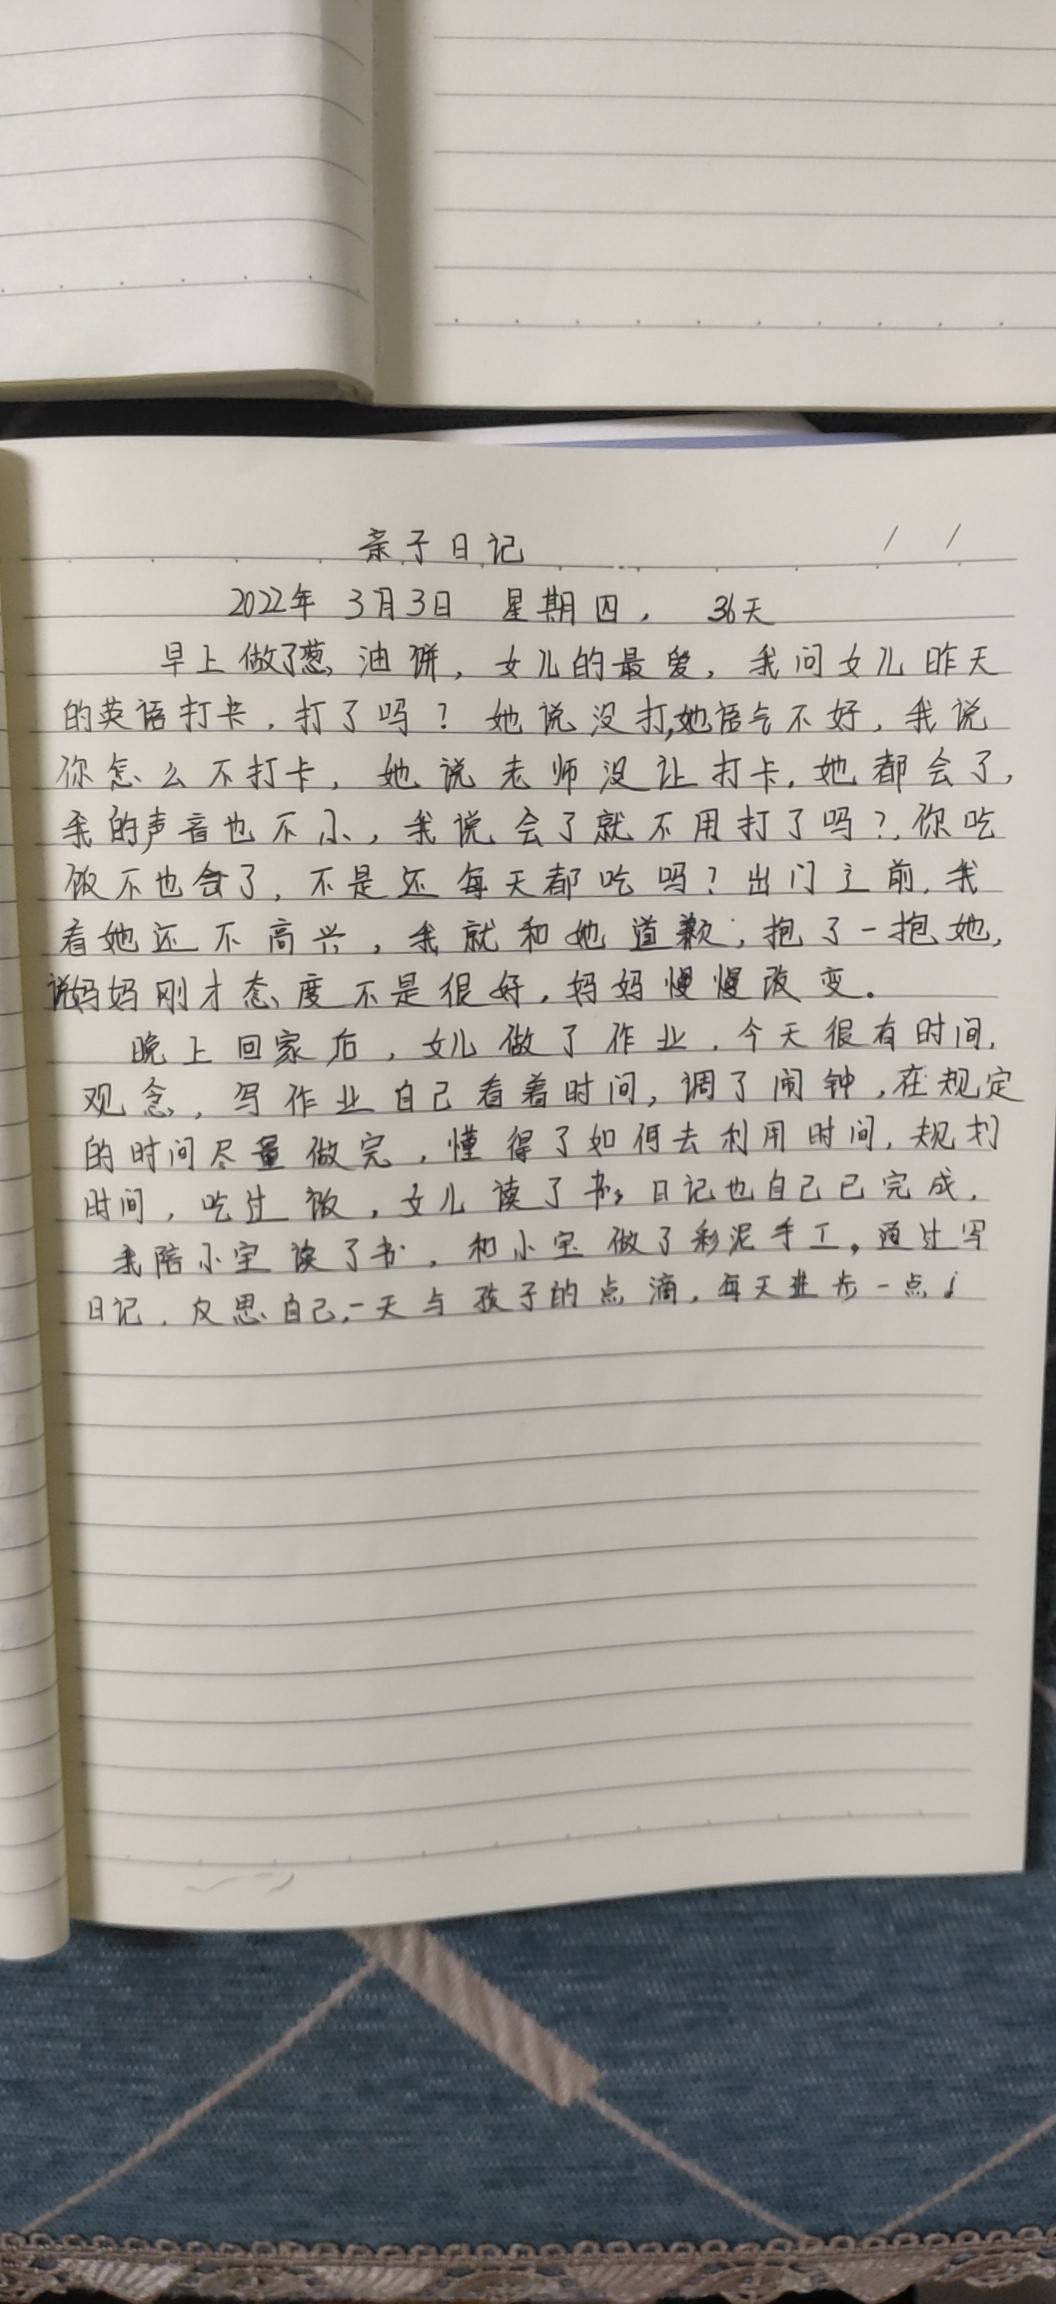 亲子日记
2022年 3月3日 星期四, 36天
早上做了葱油饼,女儿的最爱,我问女儿昨天
的英语打卡,打了吗?她说没打,她语气不好,我说
你怎么不打卡,她说老师没让打卡,她都会了,
我的声音也不小,我说会了就不用打了吗?,你吃
饭不也会了,不是还每天都吃吗?出门之前,我
看她还不高兴,我就和她道歉,抱了一抱她,
说妈妈刚才态度不是很好,妈妈慢慢改变。
晚上回家后,女儿做了作业,今天很有时间,
观念,写作业自己看着时间,调了闹钟,在规定
的时间尽量做完,懂得了如何去利用时间,规划
时间,吃过饭,女儿读了书,日记也自己已完成,
我陪小宝读了书,和小宝做了彩泥手工。通过写
日记,反思自己,一天与孩子的点滴,每天进步一点!